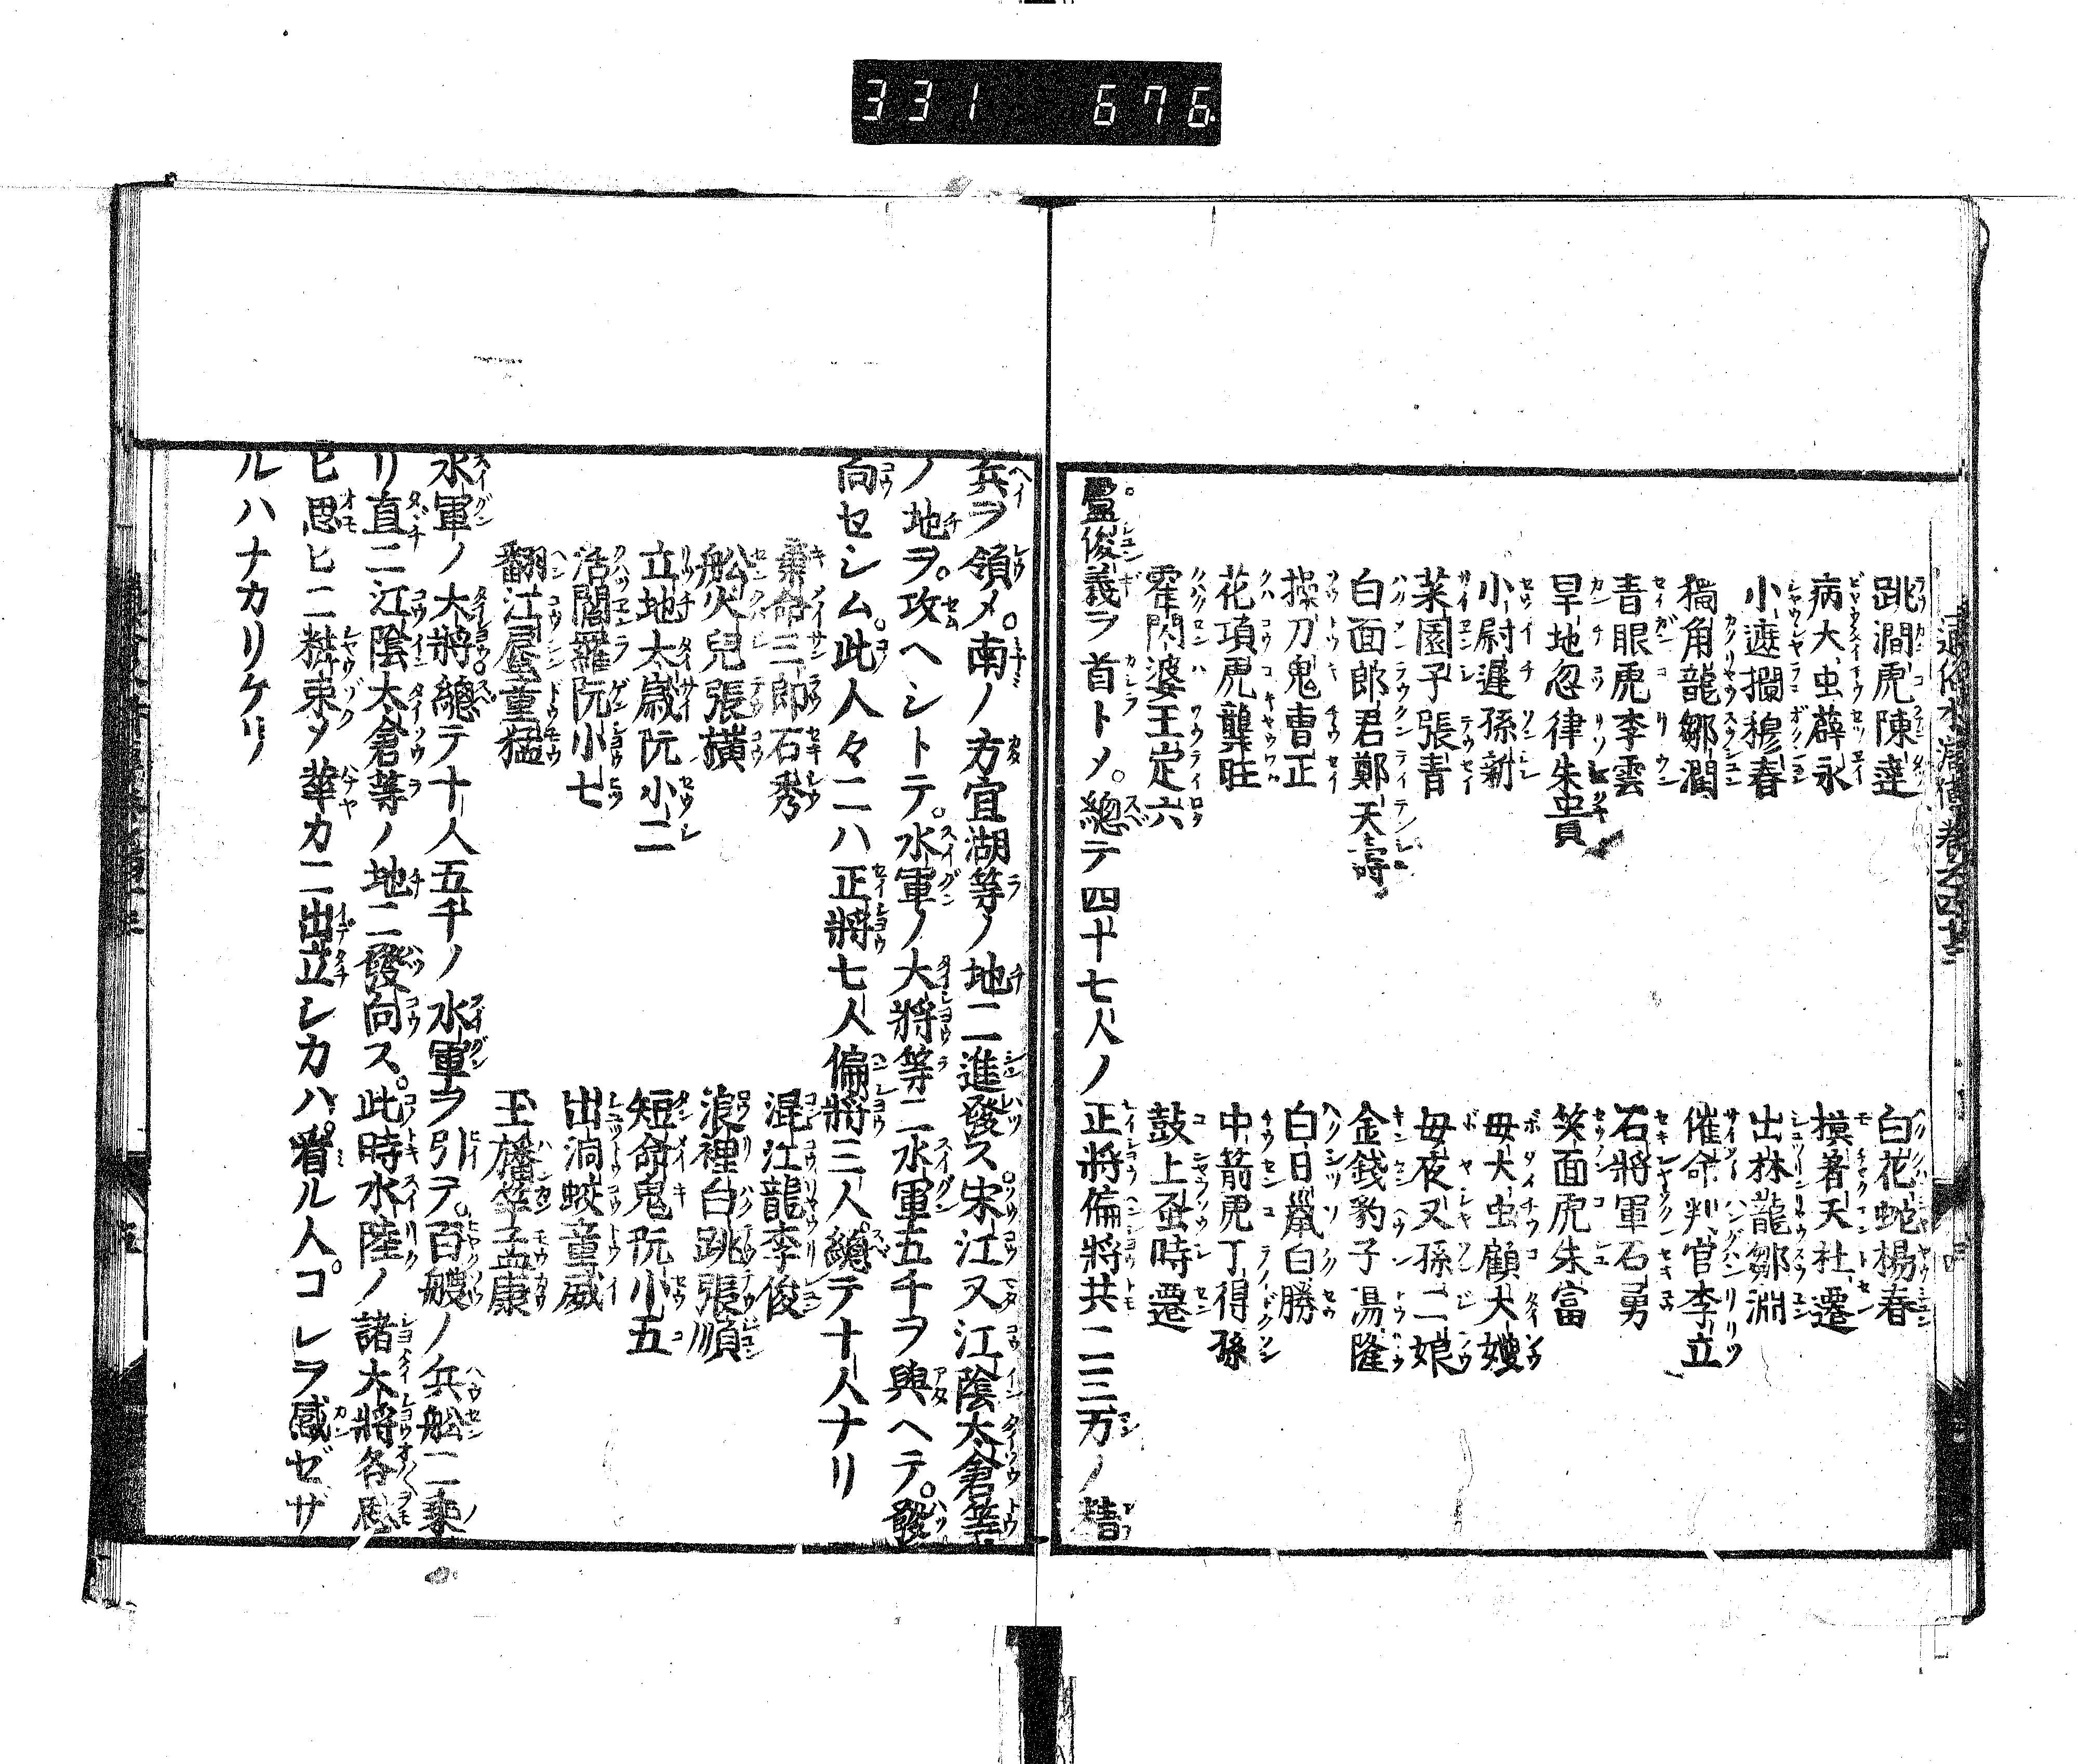 331 676
跳澗虎陳達 白花蛇楊春
病大虫薛永 摸着天杜遷
小遮攔穆春 出林龍鄒淵
獨角龍鄒潤 催命判官李立
青眼虎李雲 石將軍石勇
旱地忽律朱貴 笑面虎朱富
小尉遲孫新 母大虫顧大嫂
菜園子張青 母夜叉孫二娘
白面郎君鄭天壽 金錢豹子湯隆
操刀鬼曹正 白日鼠白勝
花項虎龔旺 中箭虎丁得孫
霍閃婆王定六 鼓上蚤時遷
盧俊義ヲ首トメ。總テ四十七人ノ正將偏將共二三万ノ精
兵ヲ領メ。南ノ方宣湖等ノ地ニ進發ス。宋江又江陰太倉等
ノ地ヲ。攻ヘシトテ。水軍ノ大將等ニ水軍五千ヲ與ヘテ。發
向セシム。此人々ニハ正將七人偏將三人總テ十人ナリ
棄命三郎石秀 混江龍李俊
船火兒張橫 浪裡白跳張順
立地太歳阮小二 短命鬼阮小五
活閻羅阮小七 出洞蛟童威
翻江蜃童猛 玉旛竿孟康
水軍ノ大將。總テ十人五千ノ水軍ヲ引テ。百艘ノ兵船ニ乘
リ直ニ江陰太倉等ノ地ニ發向ス。此時水陸ノ諸大將各思
ヒ思ヒニ裝束タ華カニ出立シカハ。看ル人。コレヲ感ゼザ
ルハナカリケリ